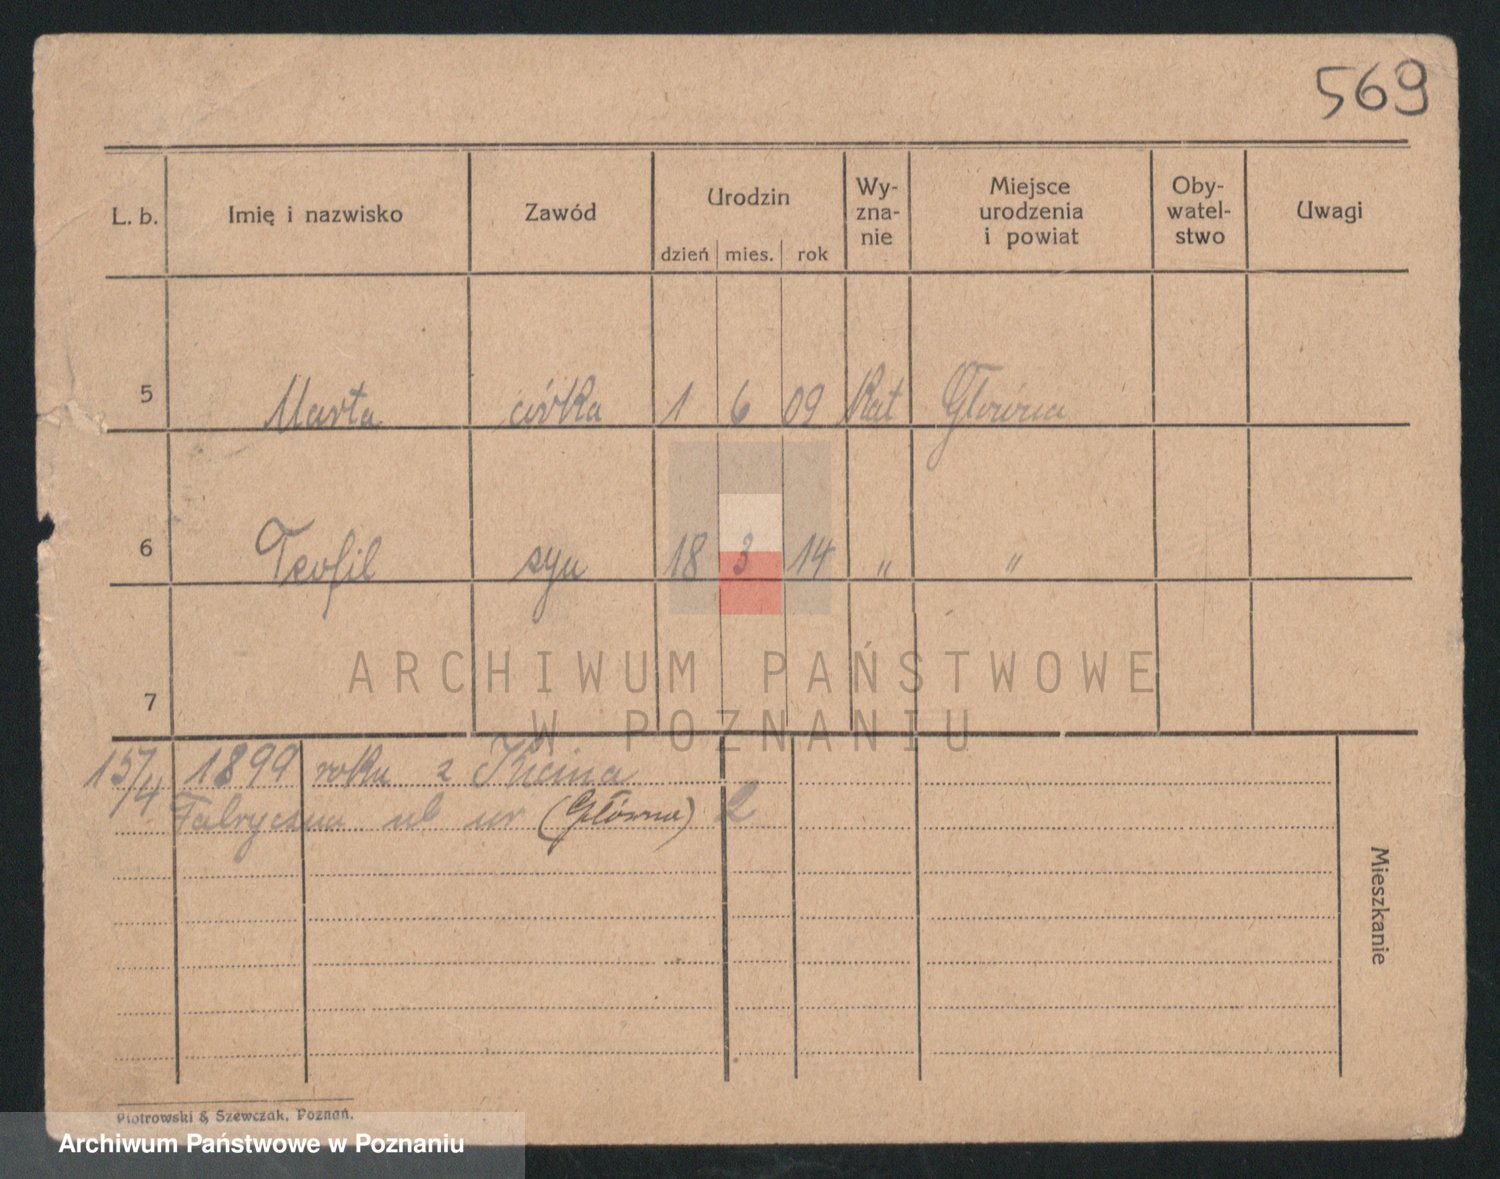 569
L. b. Imię i nazwisko Zawód Urodzin dzień mies. rok Wy-zna-nie Miejsce urodzenia i powiat Oby-watel-stwo Uwagi
5 Marta córka 1 6 09 Kat Główna
6 Teofil syn 18 3 14 „ „
ARCHIWUM PAŃSTWOWE
7
W POZNANIU
15/4 1899 roku z Kicina
Fabryczna (Główna) 2
Mieszkanie
Piotrowski & Szewczak, Poznań.
Archiwum Państwowe w Poznaniu